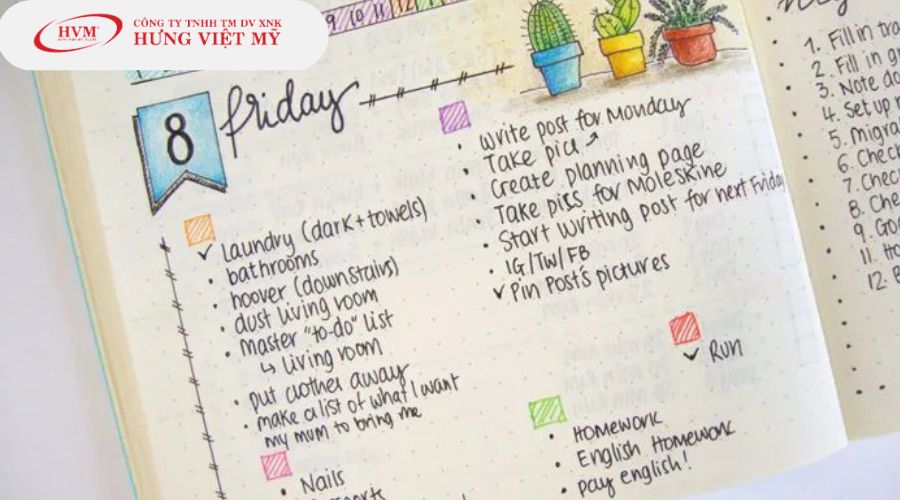 HVM
CÔNG TY TNHH TM DV XNK
HƯNG VIỆT MỸ
9 10 11 12
8 friday
✓ laundry (dark + towels)
• bathrooms
• hoover (downstairs)
• dust living room
• Master "to-do" list
↳ living room
• put clothes away
• make a list of what I want
my mum to bring me
• Nails
• Write post for Monday
• Take pics ↗
• Create planning page
• Take pics for Moleskine
• Start writing post for next Friday
• IG/TW/FB
✓ Pin Post's pictures
✓ Run
• Homework
• English Homework
• pay english!
1. Fill in
2. Fill in
3. Note
4. Set up
5.
6. Check
7.
8.
9.
11.
12.